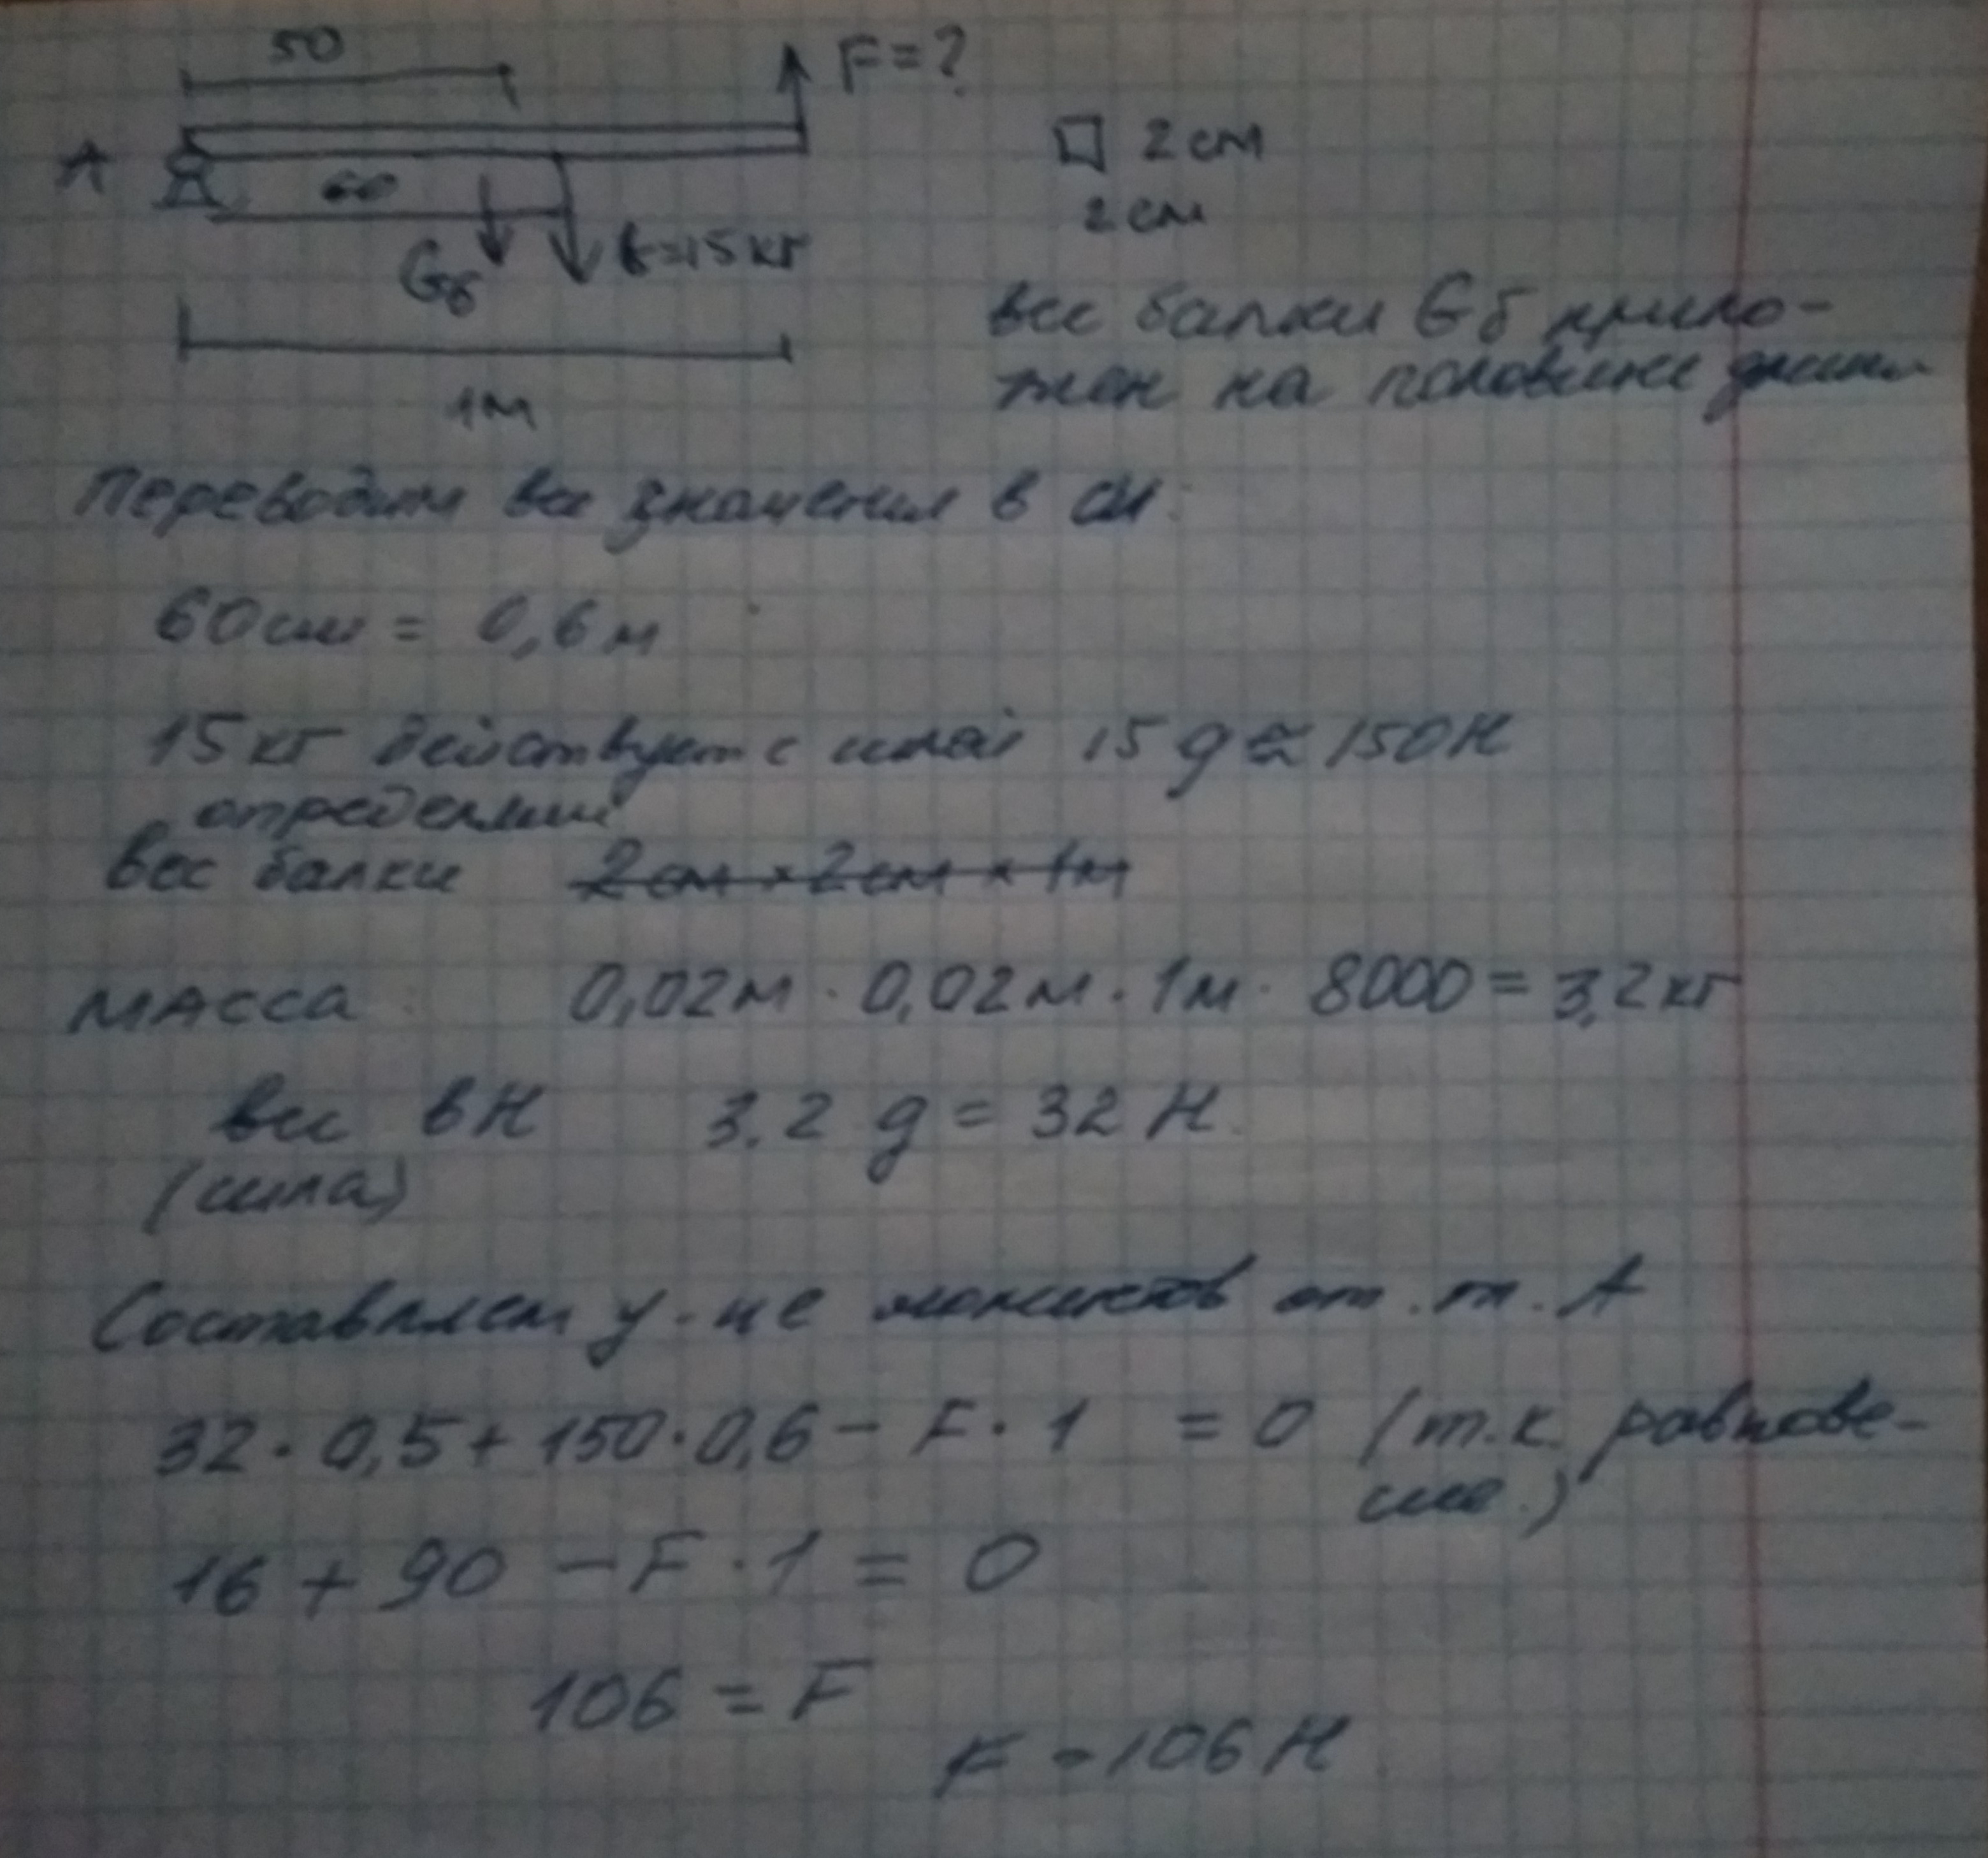 50
F=?
A
60
2 см
2 см
Gб
F=15 кг
1м
вес балки Gб прило-
жен на половине длины
Переводим все значения в СИ:
60см = 0,6 м
15 кг действует с силой 15 g ≈ 150 Н
определим
вес балки 2 см × 2 см × 1м
МАССА 0,02м · 0,02м · 1м · 8000 = 3,2 кг
вес в Н 3.2 g = 32 Н
(сила)
Составляем у-ие моментов от. т. А
32 · 0,5 + 150 · 0,6 - F · 1 = 0 (т.к. равнове-
сие.)
16 + 90 - F · 1 = 0
106 = F
F = 106 Н